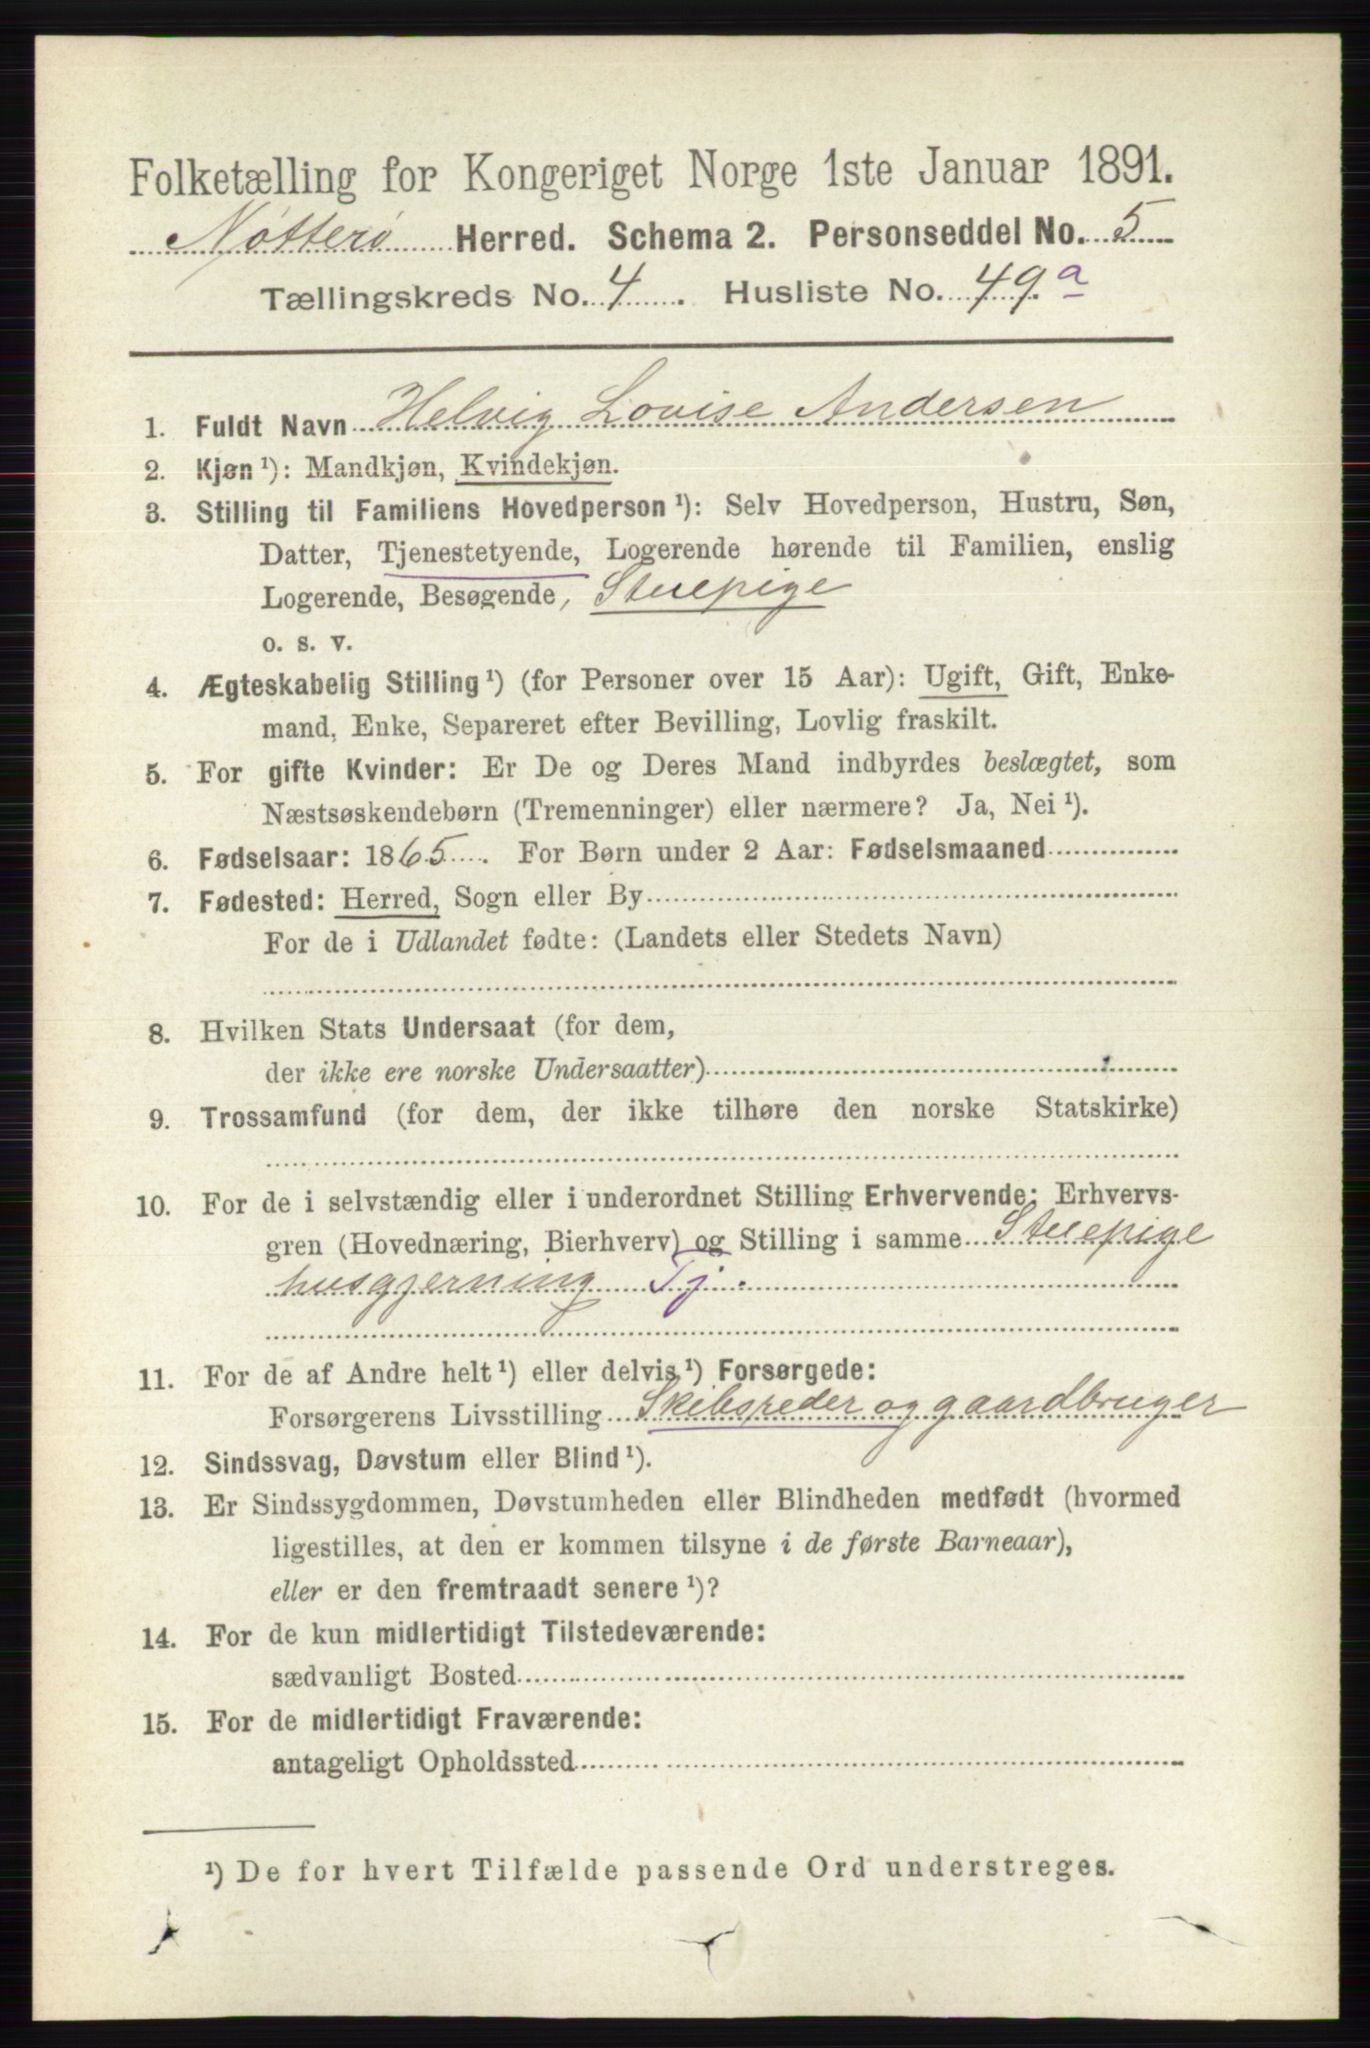 Folketælling for Kongeriget Norge 1ste Januar 1891.
Nøtterø Herred. Schema 2. Personseddel No. 5
Tællingskreds No. 4. Husliste No. 49.a
1. Fuldt Navn Helvig Lovise Andersen
2. Kjøn ¹): Mandkjøn, Kvindekjøn.
3. Stilling til Familiens Hovedperson ¹): Selv Hovedperson, Hustru, Søn,
Datter, Tjenestetyende, Logerende hørende til Familien, enslig
Logerende, Besøgende, Stuepige
o. s. v.
4. Ægteskabelig Stilling ¹) (for Personer over 15 Aar): Ugift, Gift, Enke-
mand, Enke, Separeret efter Bevilling, Lovlig fraskilt.
5. For gifte Kvinder: Er De og Deres Mand indbyrdes beslægtet, som
Næstsøskendebørn (Tremenninger) eller nærmere? Ja, Nei ¹).
6. Fødselsaar: 1865. For Børn under 2 Aar: Fødselsmaaned
7. Fødested: Herred, Sogn eller By
For de i Udlandet fødte: (Landets eller Stedets Navn)
8. Hvilken Stats Undersaat (for dem,
der ikke ere norske Undersaatter)
9. Trossamfund (for dem, der ikke tilhøre den norske Statskirke)
10. For de i selvstændig eller i underordnet Stilling Erhvervende: Erhvervs-
gren (Hovednæring, Bierhverv) og Stilling i samme Stuepige
husgjerning Tj.
11. For de af Andre helt ¹) eller delvis ¹) Forsørgede:
Forsørgerens Livsstilling Skibsreder og gaardbruger
12. Sindssvag, Døvstum eller Blind ¹).
13. Er Sindssygdommen, Døvstumheden eller Blindheden medfødt (hvormed
ligestilles, at den er kommen tilsyne i de første Barneaar),
eller er den fremtraadt senere ¹)?
14. For de kun midlertidigt Tilstedeværende:
sædvanligt Bosted
15. For de midlertidigt Fraværende:
antageligt Opholdssted
¹) De for hvert Tilfælde passende Ord understreges.